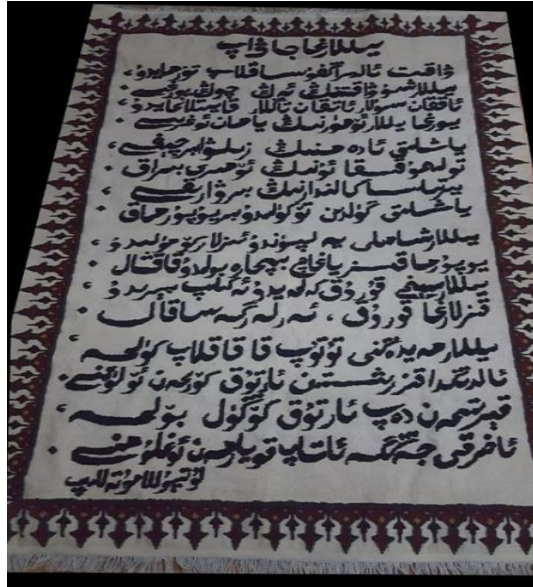 يىللارغا جاۋاپ
ۋاقىت ئالدىراڭغۇ ساقلاپ تۇرمايدۇ،
يىللار شۇ ۋاقىتنىڭ ئەڭ چوڭ يورغىسى.
ئاققان سۇلار ئاتقان تاڭلار قايتىلانمايدۇ،
يورغا يىللار ئۆمۈرنىڭ يامان ئوغرىسى.
ياشلىق ئادەمنىڭ زىلۋا بىر چېغى،
تولىمۇ قىسقا ئۇنىڭ ئۆمرى بىراق.
يىرتىلسا كالىنداردىن بىر ۋارىقى،
ياشلىق گۈلىدىن تۆكۈلىدۇ بىر يوپۇرماق.
يىللار شامىلى يەلپۈندۇ ئىزلار كۆمۈلىدۇ،
يوپۇرماقسىز ياغاچ بېچارە بولىدۇ قاقشال.
يىللار سېخى قورۇق كەلەيدۇ ئەكىلىپ بېرىدۇ،
قىزلارغا قورۇق، ئەرلەرگە ساقال.
يىللار مەيدەڭنى تۇتۇپ قاقاقلاپ كۈلمە،
ئالدىڭدا قىزىرىشتىن ئارتۇق كۆرىمەن ئۆلۈمنى.
قېرىتىمەن دەپ ئارتۇق كۆڭۈل بۆلمە،
ئاخىرقى جەڭگە ئاتاپ قويارمەن ئوغلۇمنى.
لۇتپۇللا مۇتەللىپ